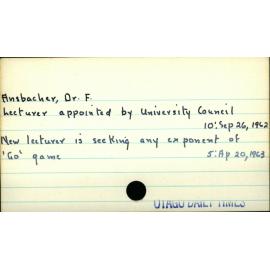 Ansbacher, Dr. F.
Lecturer appointed by University Council
10: Sep 26, 1962
New lecturer is seeking any exponent of
'Go' game 5: Ap 20, 1963
OTAGO DAILY TIMES